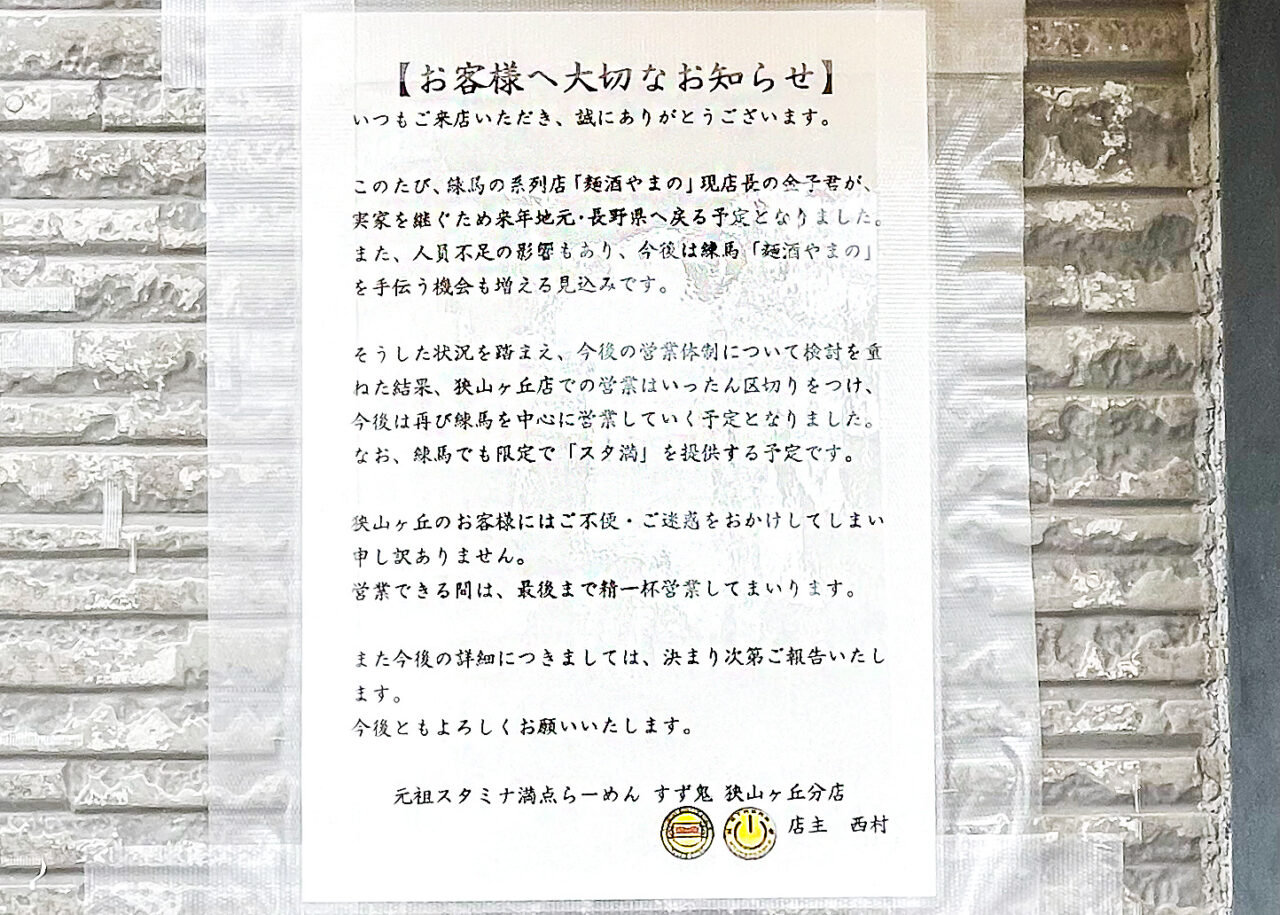 【お客様へ大切なお知らせ】
いつもご来店いただき、誠にありがとうございます。
このたび、練馬の系列店「麵酒やまの」現店長の金子君が、
実家を継ぐため来年地元・長野県へ戻る予定となりました。
また、人員不足の影響もあり、今後は練馬「麵酒やまの」
を手伝う機会も増える見込みです。
そうした状況を踏まえ、今後の営業体制について検討を重
ねた結果、狭山ヶ丘店での営業はいったん区切りをつけ、
今後は再び練馬を中心に営業していく予定となりました。
なお、練馬でも限定で「スタ満」を提供する予定です。
狭山ヶ丘のお客様にはご不便・ご迷惑をおかけしてしまい
申し訳ありません。
営業できる間は、最後まで精一杯営業してまいります。
また今後の詳細につきましては、決まり次第ご報告いたし
ます。
今後ともよろしくお願いいたします。
元祖スタミナ満点らーめん すず鬼 狭山ヶ丘分店
店主 西村